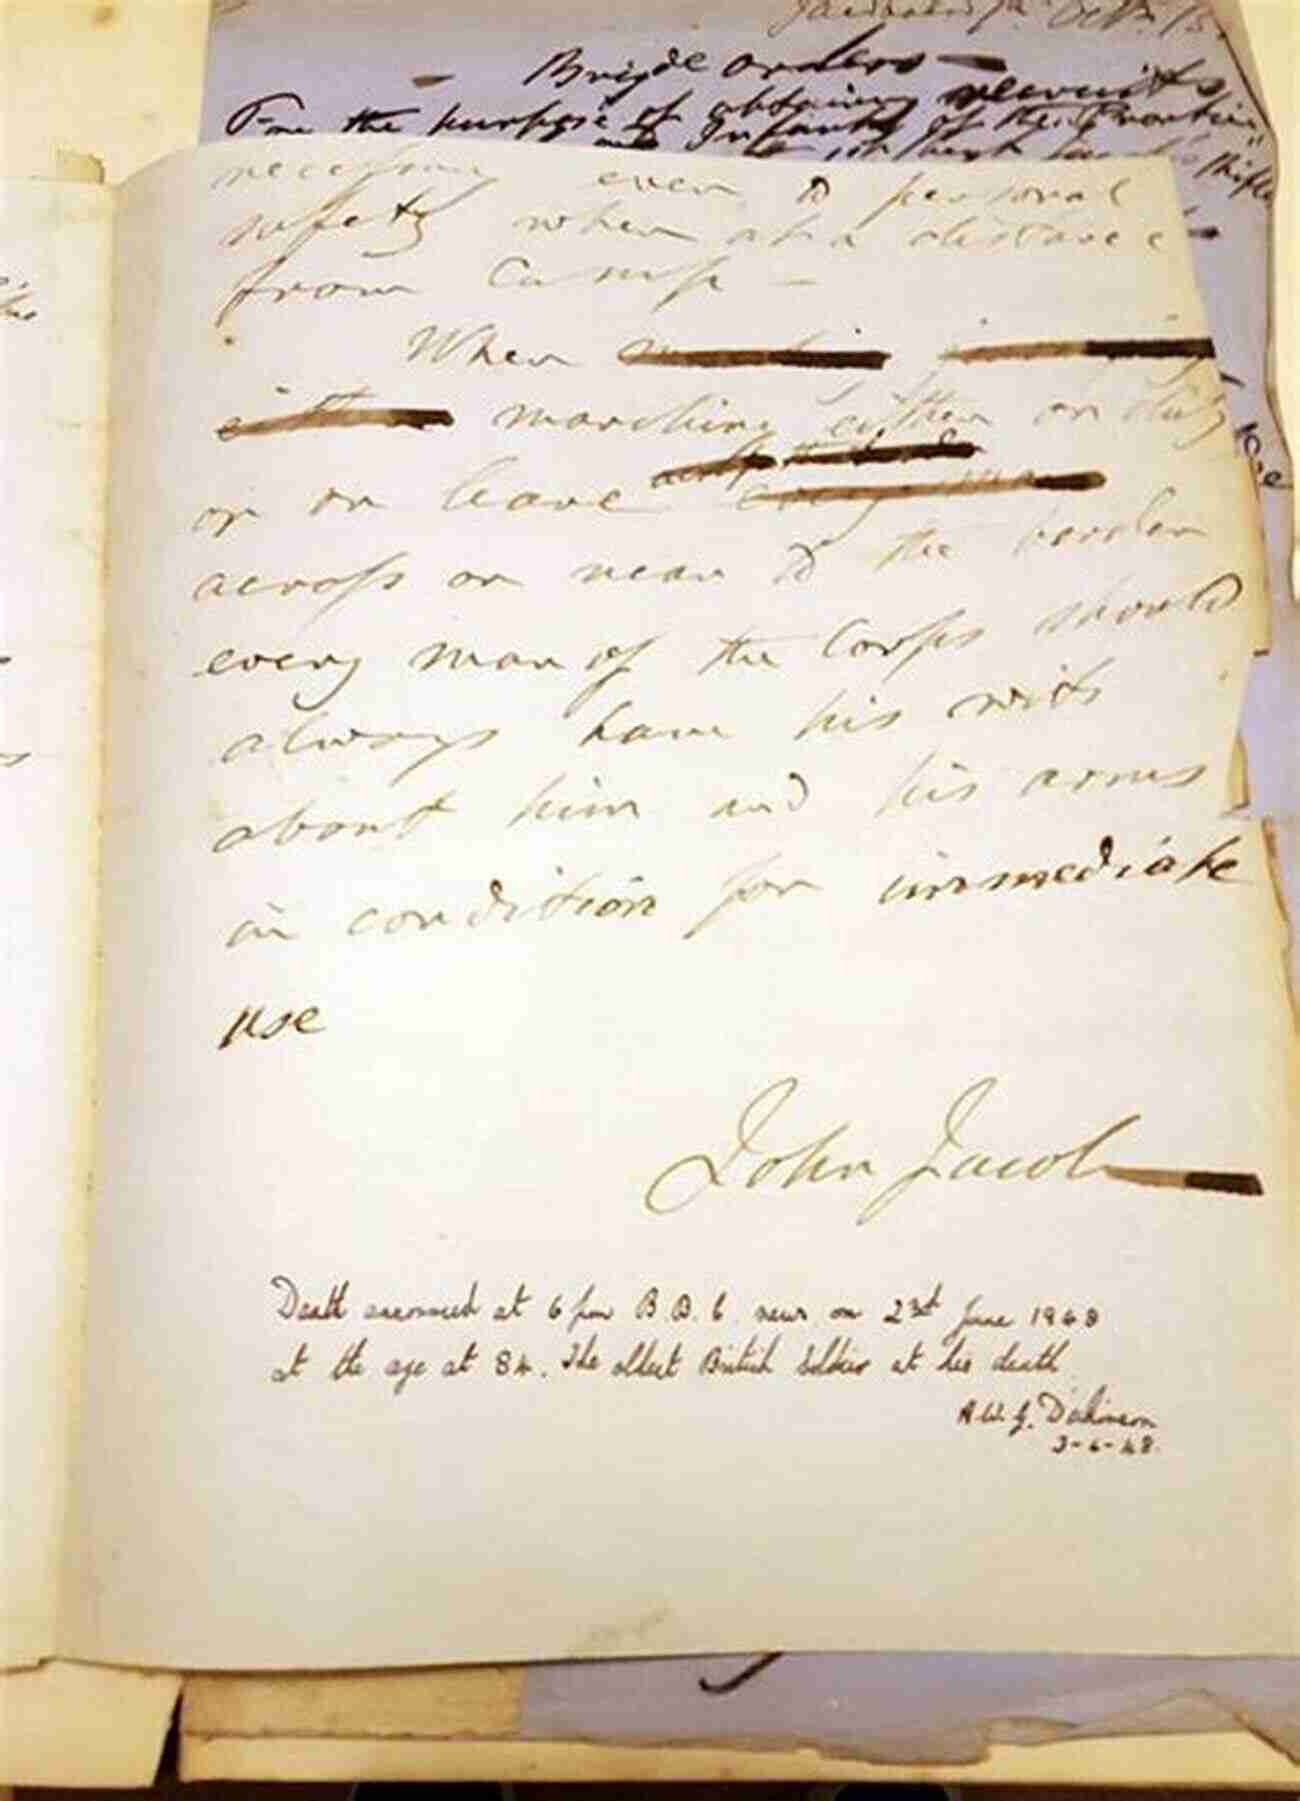 Brigde orders
For the purpose of obtaining recruits
necessary even to personal
safety when at a distance
from Camp —
When
marching either on duty
or on leave
across or near to the border
every man of the Corps should
always have his wits
about him and his arms
in condition for immediate
use
John Jacob
Death announced at 6 pm B.B.C. news on 23rd June 1948
at the age at 84. The oldest British Soldier at his death
A.W.J. Dickinson